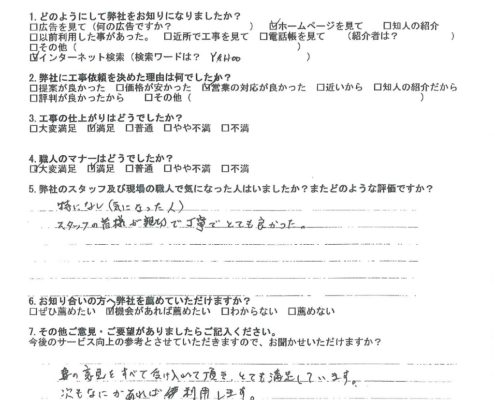 1. どのようにして弊社をお知りになりましたか?
□広告を見て (何の広告ですか? ) ☑ホームページを見て □知人の紹介
□以前利用した事があった。 □近所で工事を見て □電話帳を見て (紹介者は? )
□その他( )
☑インターネット検索 (検索ワードは? YAHOO )
2. 弊社に工事依頼を決めた理由は何でしたか?
□提案が良かった □価格が安かった ☑営業の対応が良かった □近いから □知人の紹介だから
□評判が良かったから □その他( )
3. 工事の仕上がりはどうでしたか?
□大変満足 ☑満足 □普通 □やや不満 □不満
4. 職人のマナーはどうでしたか?
☑大変満足 □満足 □普通 □やや不満 □不満
5. 弊社のスタッフ及び現場の職人で気になった人はいましたか?またどのような評価ですか?
特になし(気になった人)
スタッフの皆様が親切で丁寧でとても良かった。
6. お知り合いの方へ弊社を薦めていただけますか?
□ぜひ薦めたい ☑機会があれば薦めたい □わからない □薦めない
7. その他ご意見・ご要望がありましたらご記入ください。
今後のサービス向上の参考とさせていただきますので、お聞かせいただけますか?
の意見をすべて受け入れて頂き、とても満足しています。
次もなにかあれば利用します。